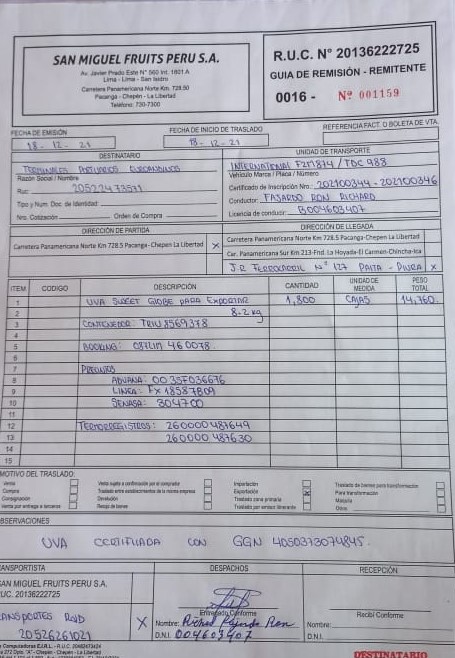 SAN MIGUEL FRUITS PERU S.A.
Av. Javier Prado Este N° 560 Int. 1801 A
Lima - Lima - San Isidro
Carretera Panamericana Norte Km. 728.50
Pacanga - Chepén - La Libertad
Teléfono: 730-7300
R.U.C. N° 20136222725
GUIA DE REMISIÓN - REMITENTE
0016 - Nº 001159
FECHA DE EMISIÓN
18 - 12 - 21
FECHA DE INICIO DE TRASLADO
18 - 12 - 21
REFERENCIA FACT. O BOLETA DE VTA.
DESTINATARIO
TERMINALES PORTUARIOS EUROANDINOS
Razón Social / Nombre
Ruc: 20522473571
Tipo y Num. Doc. de Identidad:
Nro. Cotización: Orden de Compra:
UNIDAD DE TRANSPORTE
INTERNATIONAL F2M814 / TDC 988
Vehículo Marca / Placa / Número
Certificado de Inscripción Nro.: 202100344 - 202100346
Conductor: FAJARDO RON RICHARD
Licencia de conducir: B004603407
DIRECCIÓN DE PARTIDA
Carretera Panamericana Norte Km 728.5 Pacanga-Chepen La Libertad X
DIRECCIÓN DE LLEGADA
Carretera Panamericana Norte Km 728.5 Pacanga-Chepen La Libertad
Car. Panamericana Sur Km 213-Fnd. La Hoyada-El Carmen-Chincha-Ica
J.R FERROCARRIL N° 127 PAITA - PIURA X
ITEM CODIGO DESCRIPCIÓN CANTIDAD UNIDAD DE MEDIDA PESO TOTAL
1 UVA SWEET GLOBE PARA EXPORTAR 1,800 CAJAS 14,760.
2 8.2 kg
3 CONTENEDOR: TRIU 8569378
4
5 BOOKING: 
6
7 PRECINTOS
8 ADUANA: 
9 LINEA: FX 18587809
10 SENASA: 304700
11
12 TERMORREGISTROS: 260000487649
13 260000487630
14
15
MOTIVO DEL TRASLADO:
Venta
Compra
Consignación
Venta por entrega a terceros
Venta sujeta a confirmación por el comprador
Traslado entre establecimientos de la misma empresa
Devolución
Recojo de bienes
Importación
Exportación X
Traslado zona primaria
Traslado por emisor itinerante
Traslado de bienes para transformación
Para transformación
Maquila
Otros
OBSERVACIONES
UVA CERTIFICADA CON GGN 4050373074845.
TRANSPORTISTA
SAN MIGUEL FRUITS PERU S.A.
RUC. 20136222725
20526261021
X
DESPACHOS
Entregado Conforme
Nombre: Richard Fajardo Ron
D.N.I. 004603407
RECEPCIÓN
Recibí Conforme
Nombre:
D.N.I.
DESTINATARIO